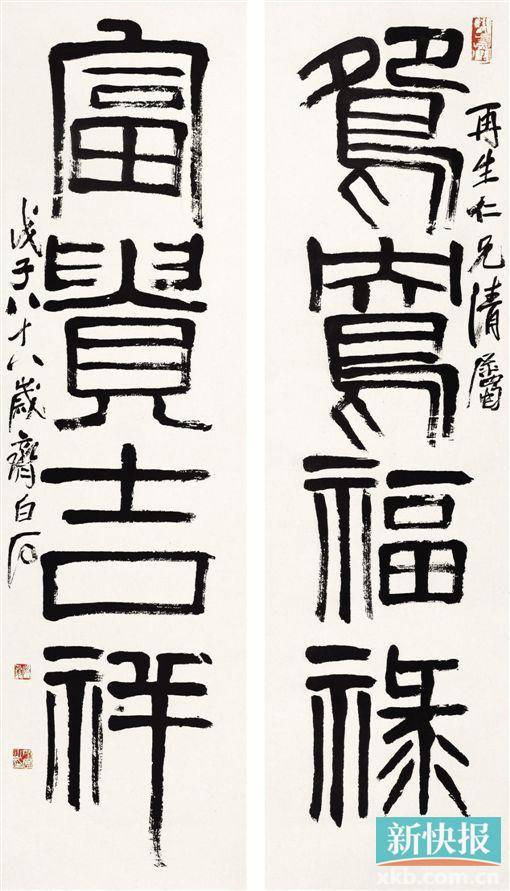 再生仁兄清屬
鴛鴦福祿
富貴吉祥
戊子八十八歲齊白石
新快报
xkb.com.cn